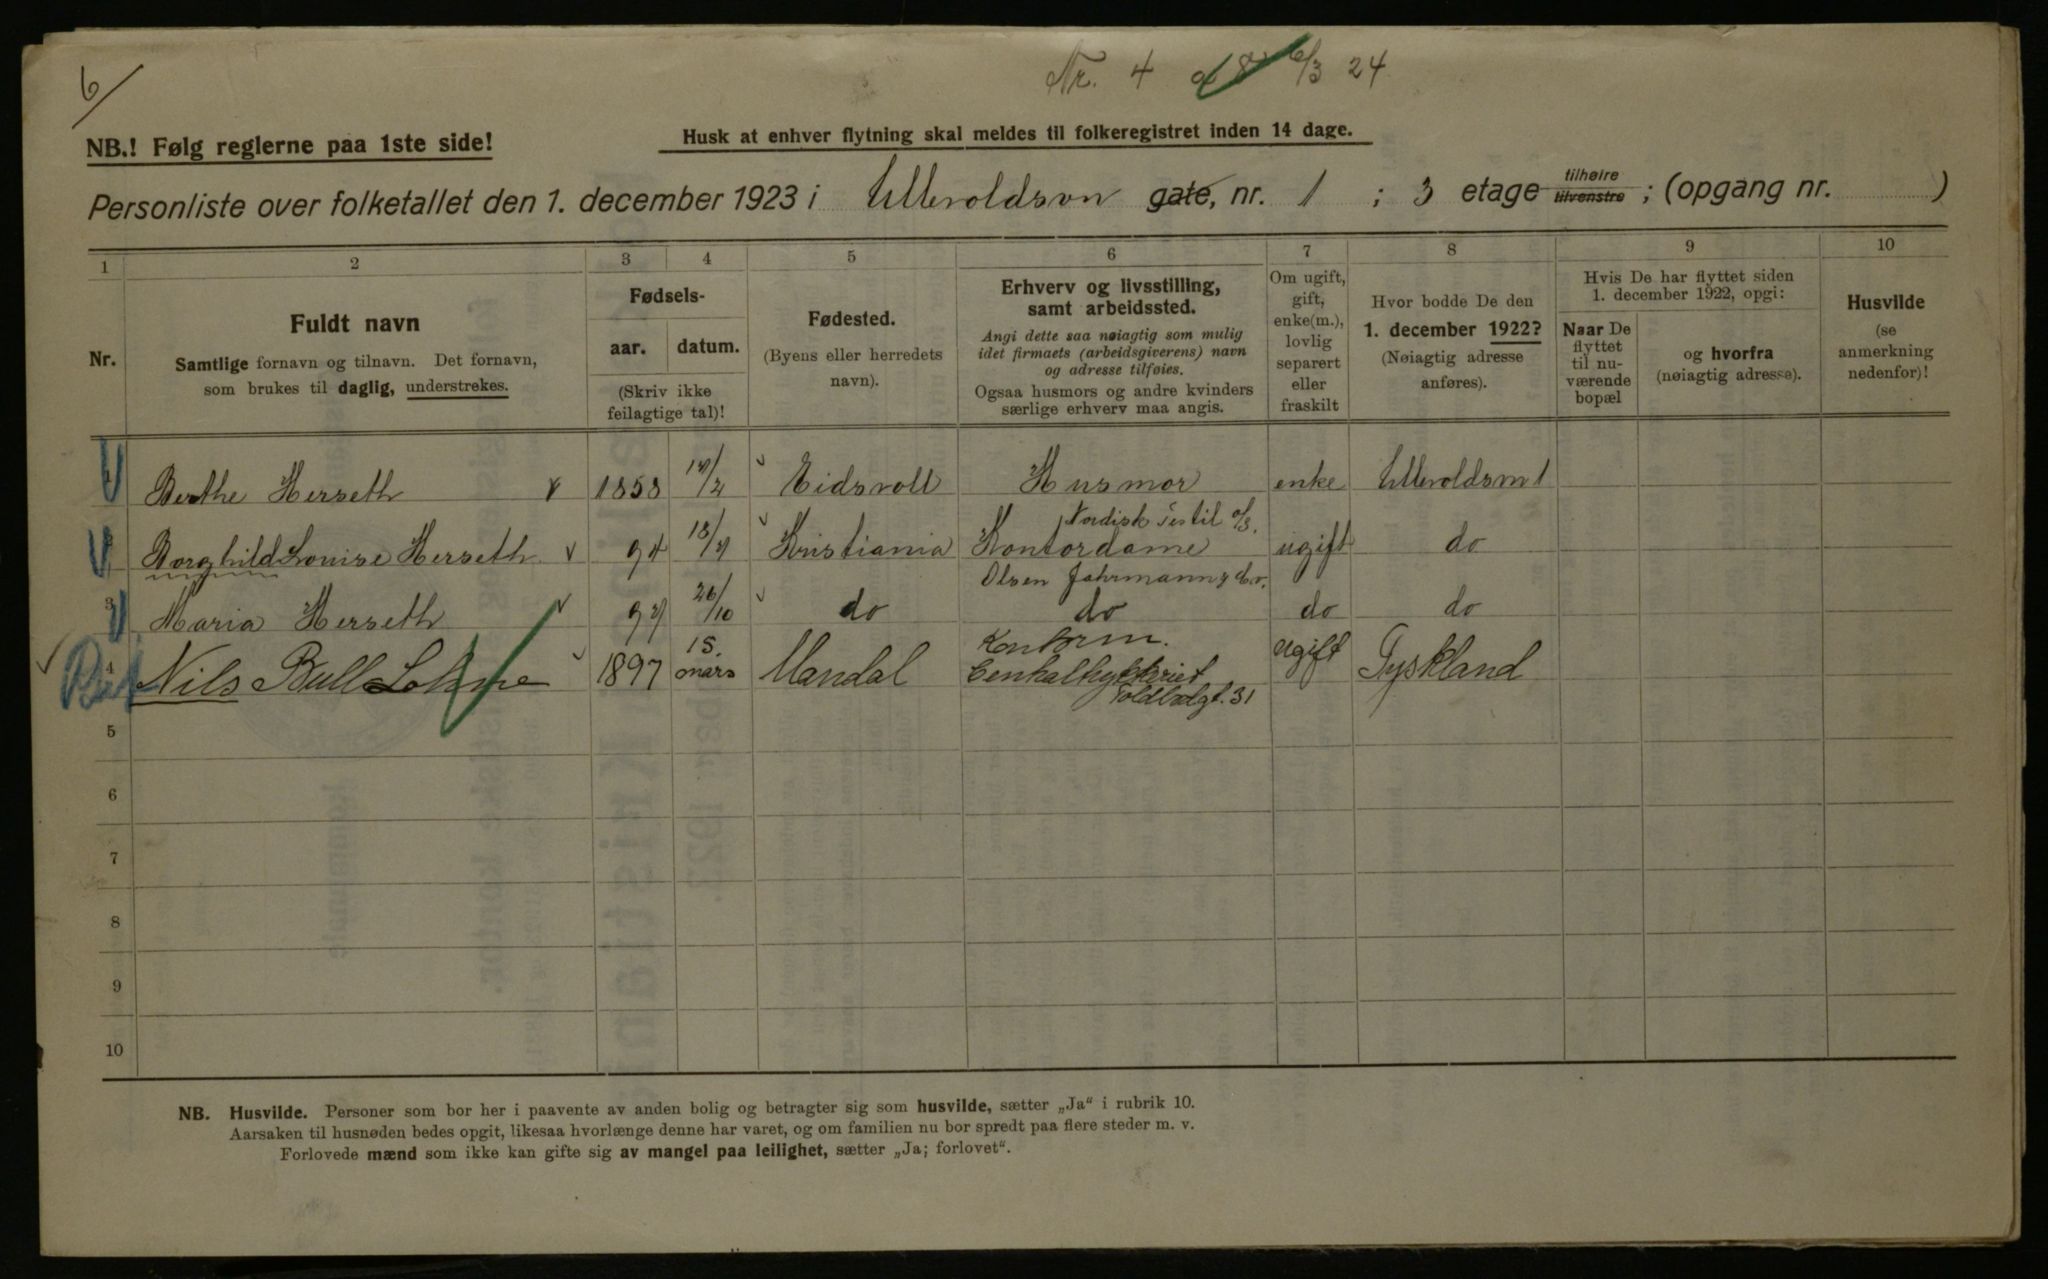 6/
Nr. 4 6/3 24
NB.! Følg reglerne paa 1ste side!
Husk at enhver flytning skal meldes til folkeregistret inden 14 dage.
Personliste over folketallet den 1. december 1923 i Ullevoldsvn gate, nr. 1 ; 3 etage tilhøire tilvenstre ; (opgang nr. )
1 2 3 4 5 6 7 8 9 10
Nr.
Fuldt navn
Samtlige fornavn og tilnavn. Det fornavn,
som brukes til daglig, understrekes.
Fødsels-
aar. datum.
(Skriv ikke
feilagtige tal)!
Fødested.
(Byens eller herredets
navn).
Erhverv og livsstilling,
samt arbeidssted.
Angi dette saa nøiagtig som mulig
idet firmaets (arbeidsgiverens) navn
og adresse tilføies.
Ogsaa husmors og andre kvinders
særlige erhverv maa angis.
Om ugift,
gift,
enke(m.),
lovlig
separert
eller
fraskilt
Hvor bodde De den
1. december 1922?
(Nøiagtig adresse
anføres).
Hvis De har flyttet siden
1. december 1922, opgi:
Naar De
flyttet
til nu-
værende
bopæl
og hvorfra
(nøiagtig adresse).
Husvilde
(se
anmerkning
nedenfor)!
1 Berthe Herseth 1858 14/2 Eidsvoll Husmor enke Ullevoldsvn 1
Nordisk Textil a/s.
2 Borghild Louise Herseth 94 18/4 Kristiania Kontordame ugift do
Olsen Fahrmann & Co.
3 Maria Herseth 97 26/10 do do do do
4 Nils Bull Lohme 1897 15. mars Mandal Kontorm. ugift Tyskland
Centraltrykkeriet
Toldbodgt. 31
5
6
7
8
9
10
NB. Husvilde. Personer som bor her i paavente av anden bolig og betragter sig som husvilde, sætter „Ja“ i rubrik 10.
Aarsaken til husnøden bedes opgit, likesaa hvorlænge denne har varet, og om familien nu bor spredt paa flere steder m. v.
Forlovede mænd som ikke kan gifte sig av mangel paa leilighet, sætter „Ja; forlovet“.